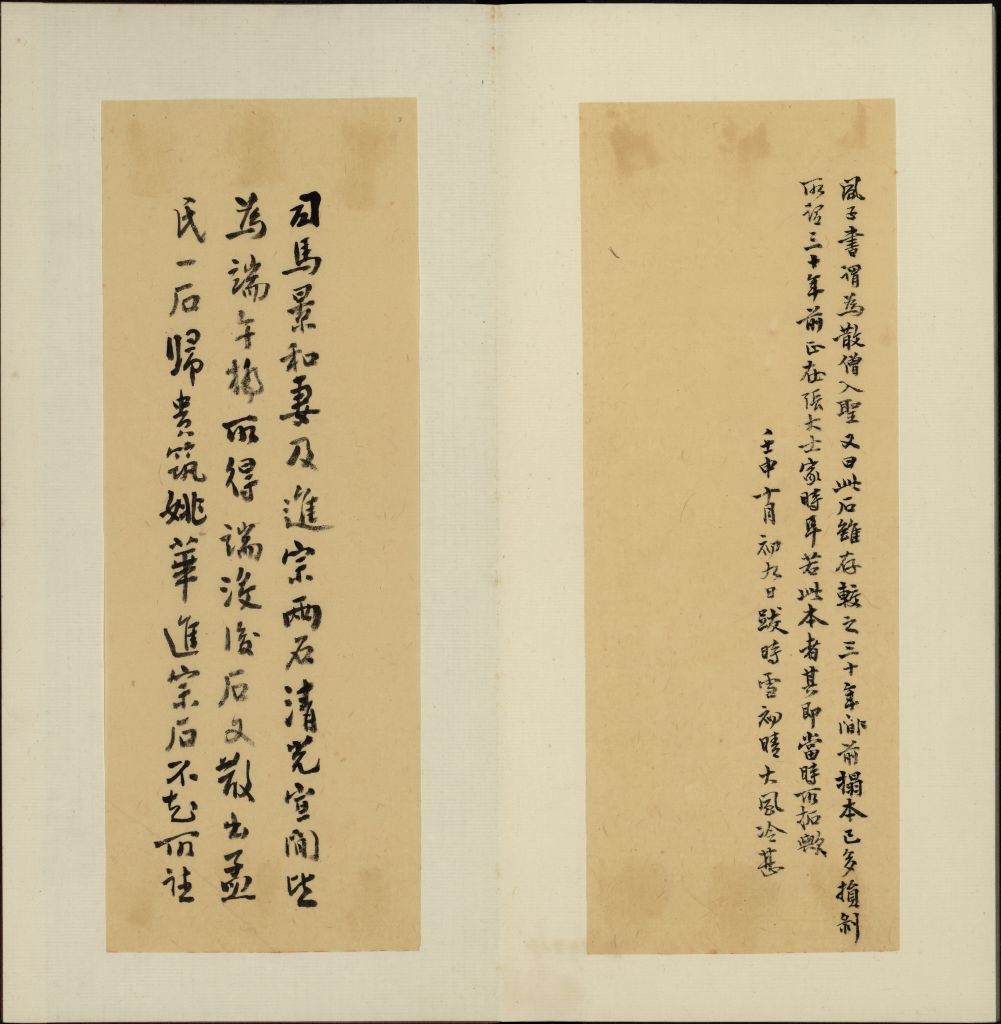 風子書謂為散僧入聖又曰此石雖存較之三十年前搨本已多損剝
所謂三十年前正在張大士家時耳若此本者其即當時所拓歟
壬申十月初九日跋時雪初晴大風冷甚
司馬景和妻及進宗兩石清光宣間皆
為端午橋所得端沒後石又散出孟
氏一石歸貴筑姚華進宗石不知所往